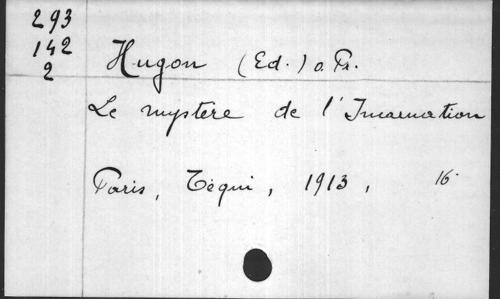 293
142
2
Hugon (Ed.) o. Pr.
Le mystère de l'Incarnation
Paris, Téqui, 1913, 16°